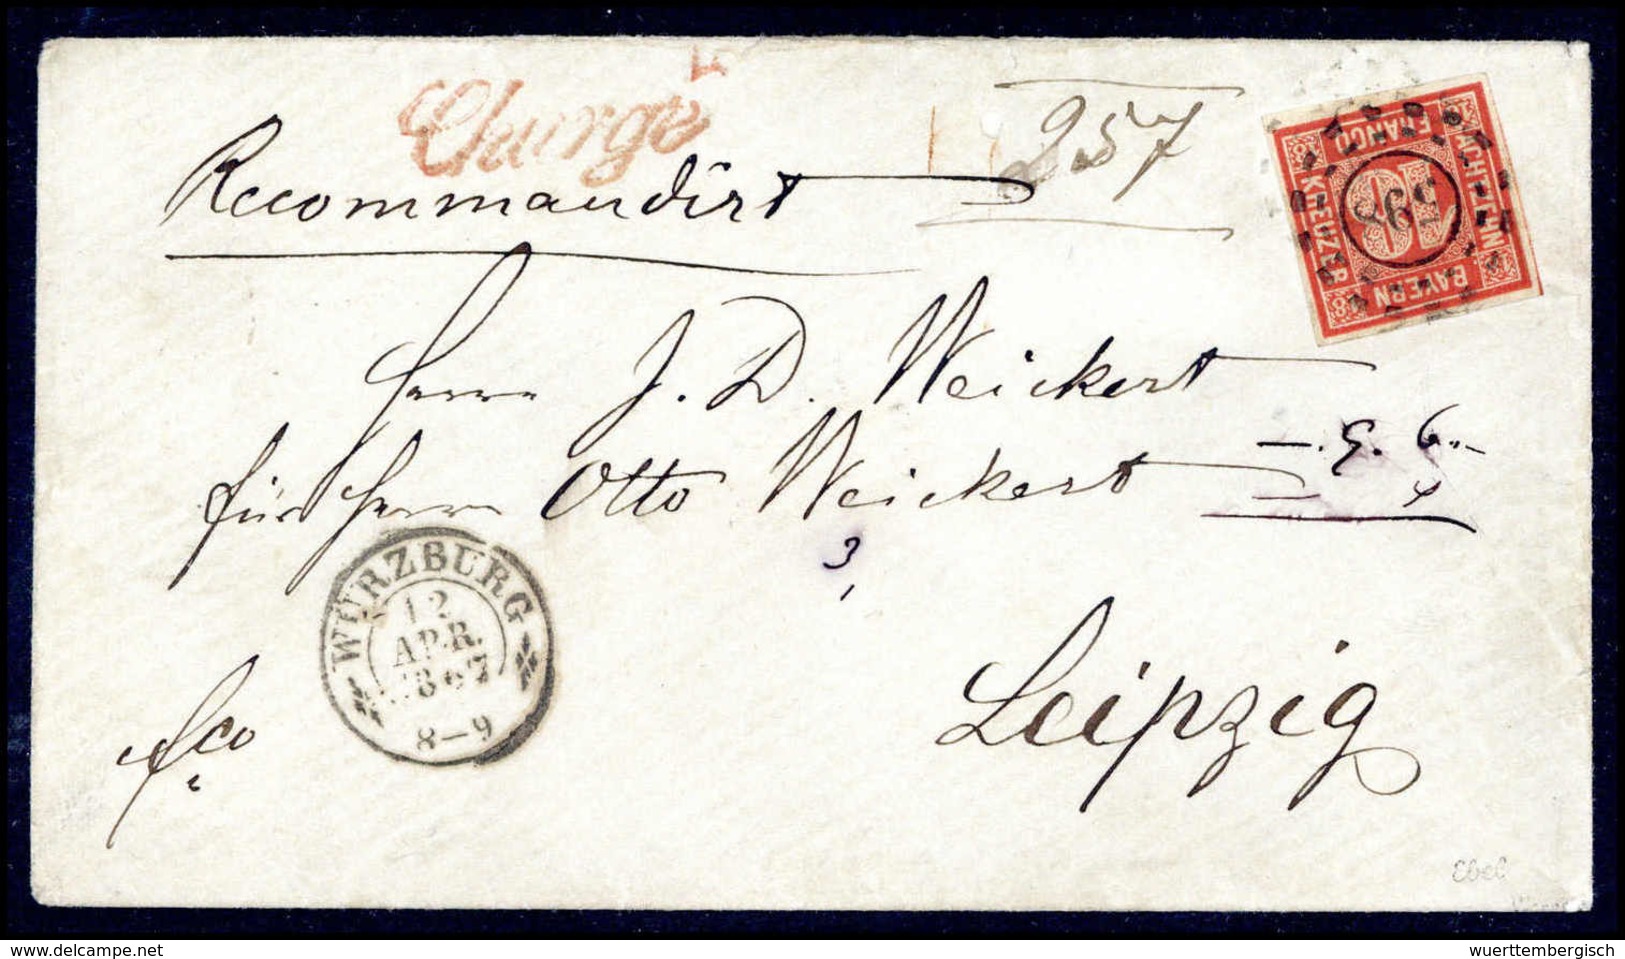 Chargé
Recommandirt
257
BAYERN
ACHTZEHN
KREUZER
FRANCO
18
598
Herrn J. D. Weickert
für Herrn Otto Weickert
3
WÜRZBURG
12
APR.
1867
8-9
fco
Leipzig
Ebel
wuerttembergisch